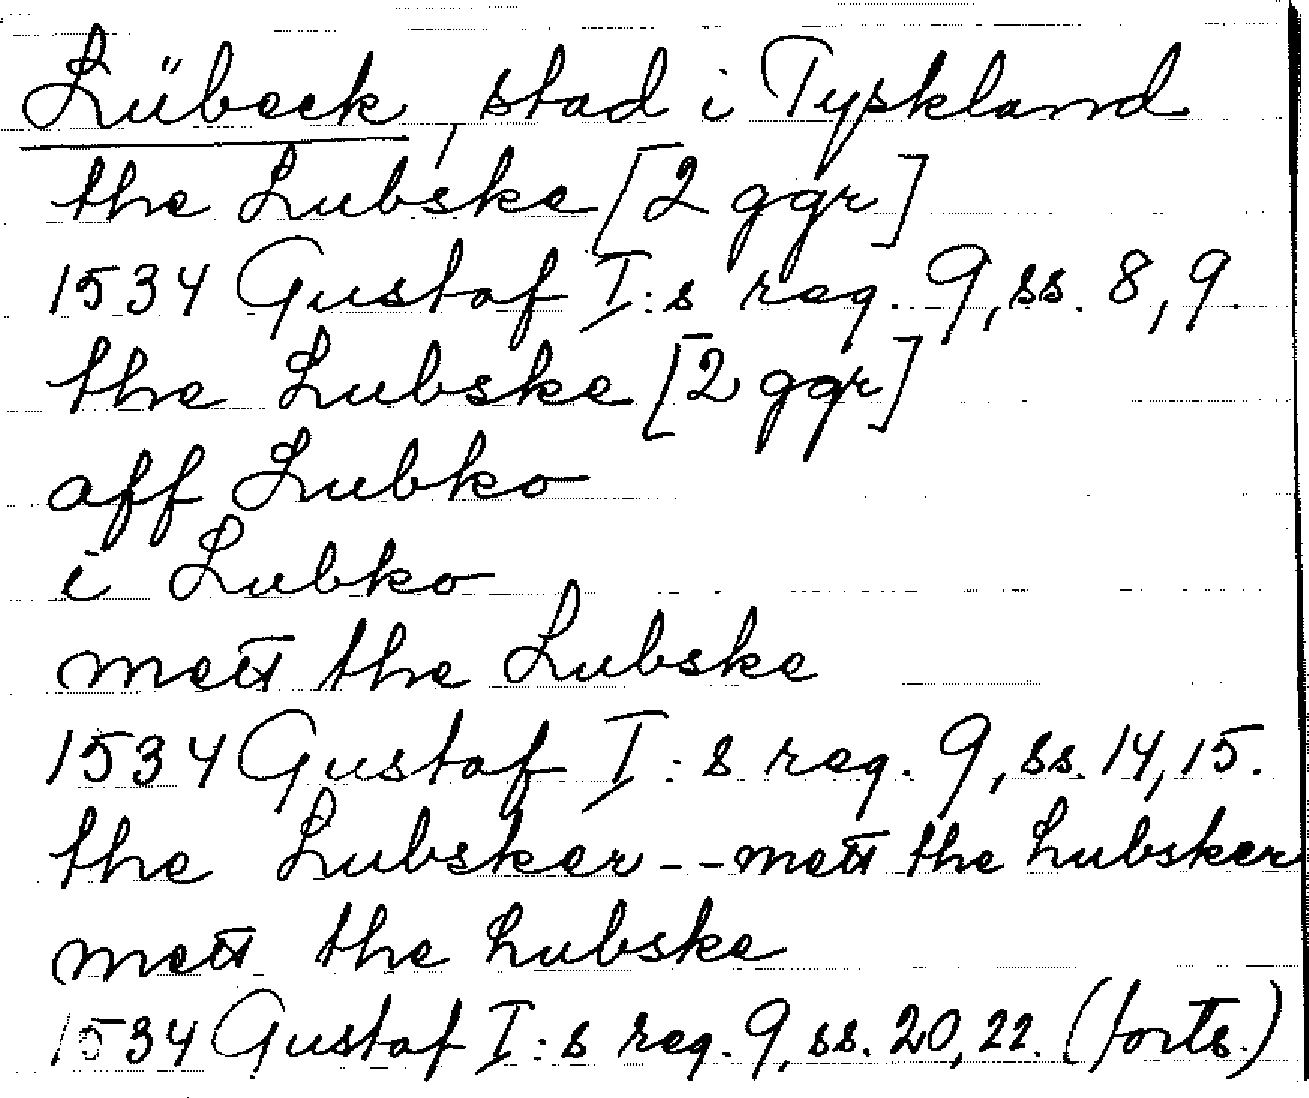 Lübeck, stad i Tyskland
the Lubske [2 ggr]
1534 Gustaf I:s reg. 9, ss. 8, 9.
the Lubske [2 ggr]
aff Lubko
i Lubko
mett the Lubske
1534 Gustaf I:s reg. 9, ss. 14, 15.
the Lubsker -- mett the Lubsker
mett the Lubske
1534 Gustaf I:s reg. 9, ss. 20, 22. (forts.)